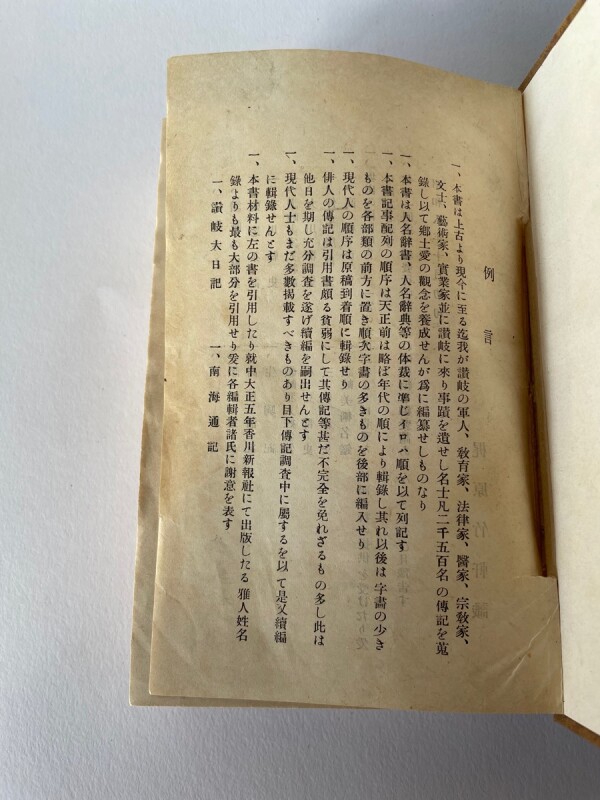 例言
一、本書は上古より現今に至る迄我が讃岐の軍人、教育家、法律家、醫家、宗教家、
文士、藝術家、實業家並に讃岐に來り事蹟を遺せし名士凡二千五百名の傳記を蒐
錄し以て鄕土愛の觀念を養成せんが爲に編纂せしものなり
一、本書は人名辭書、人名辭典等の体裁に準じイロハ順を以て列記す
一、本書記事配列の順序は天正前は略ぼ年代の順により輯錄し其れ以後は字畫の少き
ものを各部類の前方に置き順次字畫の多きものを後部に編入せり
一、現代人の順序は原稿到着順に輯錄せり
一、俳人の傳記は引用書頗る貧弱にして其傳記等甚だ不完全を免れざるもの多し此は
他日を期し充分調査を遂げ續編を嗣出せんとす
一、現代人士もまだ多數揭載すべきものあり目下傳記調査中に屬するを以て是又續編
に輯錄せんとす
一、本書材料に左の書を引用したり就中大正五年香川新報社にて出版したる雅人姓名
錄よりも最も大部分を引用せり爰に各編輯者諸氏に謝意を表す
一、讃岐大日記　一、南海通記